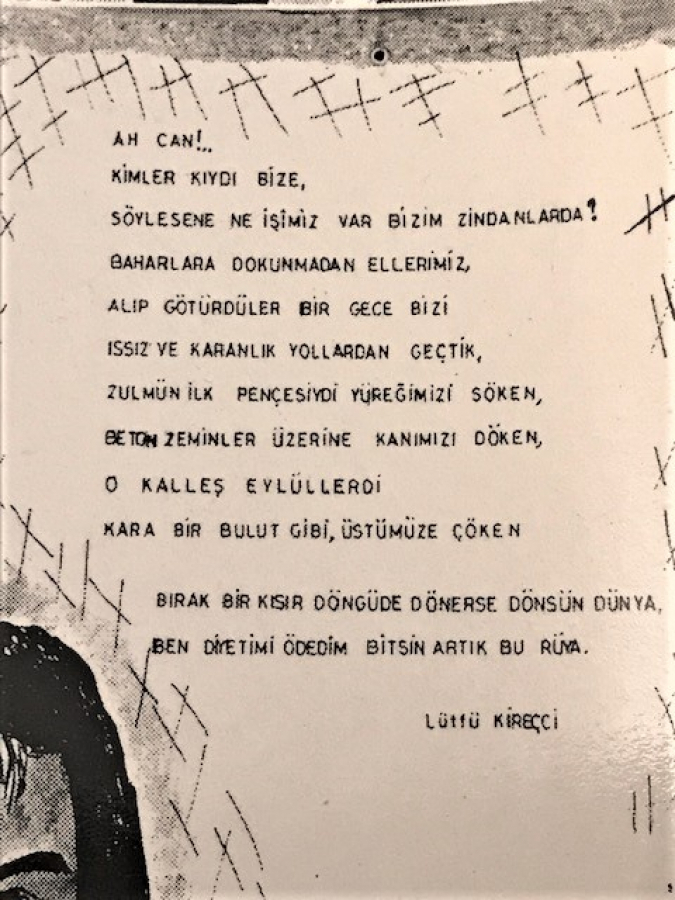 AH CAN!..
KİMLER KIYDI BİZE,
SÖYLESENE NE İŞİMİZ VAR BİZİM ZİNDANLARDA?
BAHARLARA DOKUNMADAN ELLERİMİZ,
ALIP GÖTÜRDÜLER BİR GECE BİZİ
ISSIZ VE KARANLIK YOLLARDAN GEÇTİK,
ZULMÜN İLK PENÇESİYDİ YÜREĞİMİZİ SÖKEN,
BETON ZEMİNLER ÜZERİNE KANIMIZI DÖKEN,
O KALLEŞ EYLÜLLERDİ
KARA BİR BULUT GİBİ, ÜSTÜMÜZE ÇÖKEN
BIRAK BİR KISIR DÖNGÜDE DÖNERSE DÖNSÜN DÜNYA,
BEN DİYETİMİ ÖDEDİM BİTSİN ARTIK BU RÜYA.
Lütfü KİREÇCİ